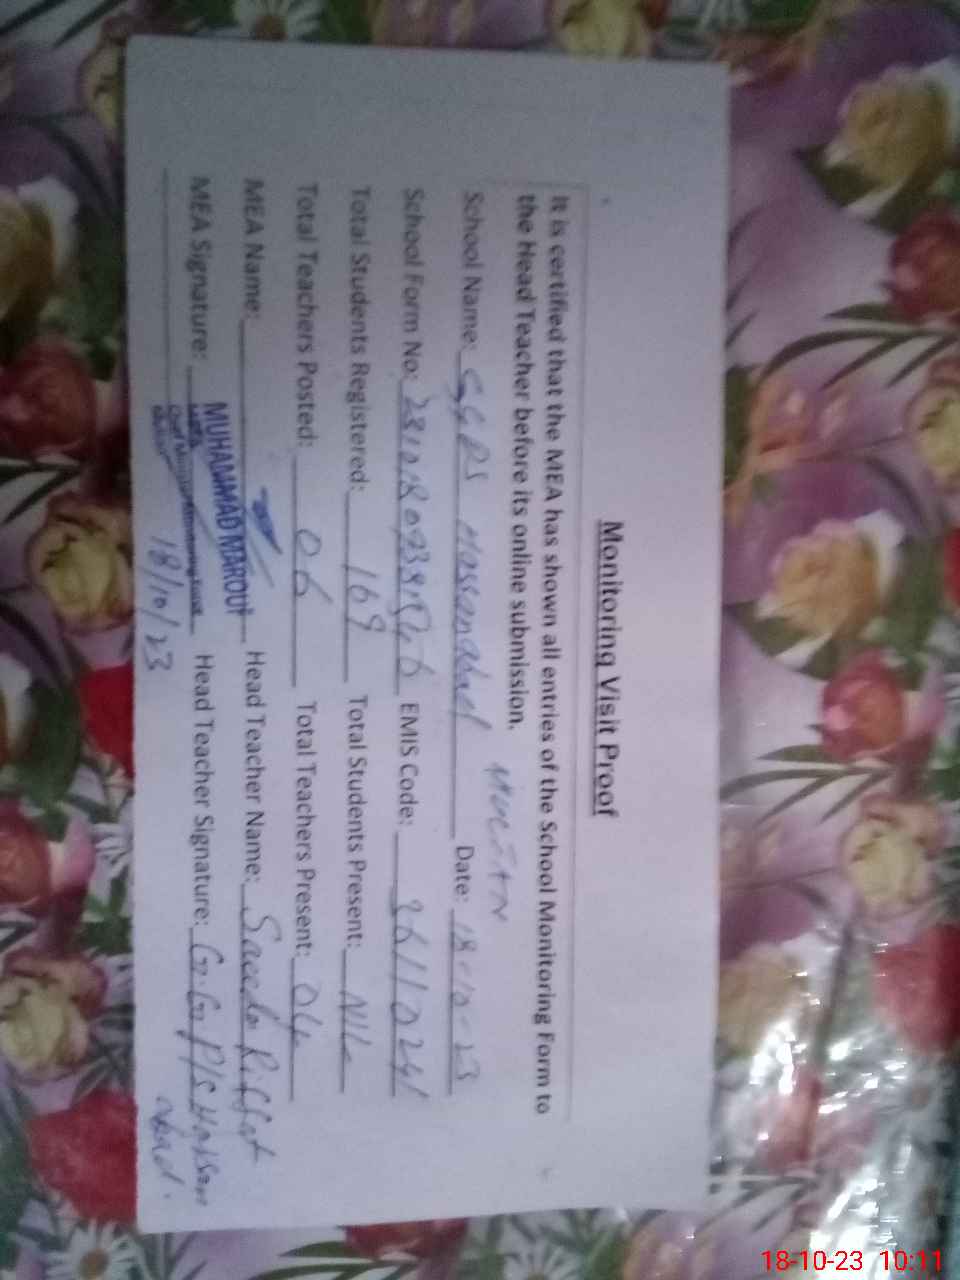 Monitoring Visit Proof
It is certified that the MEA has shown all entries of the School Monitoring Form to
the Head Teacher before its online submission.
MULTAN
School Name: GGPS Hassanabad Date: 18-10-23
School Form No: EMIS Code: 36110241
Total Students Registered: 169 Total Students Present: Nil
Total Teachers Posted: 06 Total Teachers Present: 04
MEA Name: Head Teacher Name: Saeeda Riffat
MUHAMMAD MAROUF
MEA Signature: Head Teacher Signature: G.G.P/S Hassan
abad.
18/10/23
18-10-23 10:11